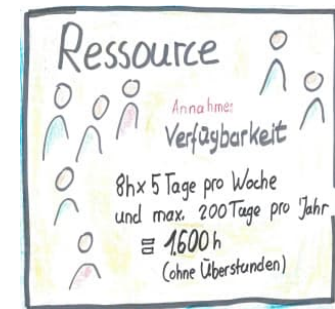 Ressource
Annahme:
Verfügbarkeit
8h x 5 Tage pro Woche
und max. 200 Tage pro Jahr
≙ 1.600 h
(ohne Überstunden)